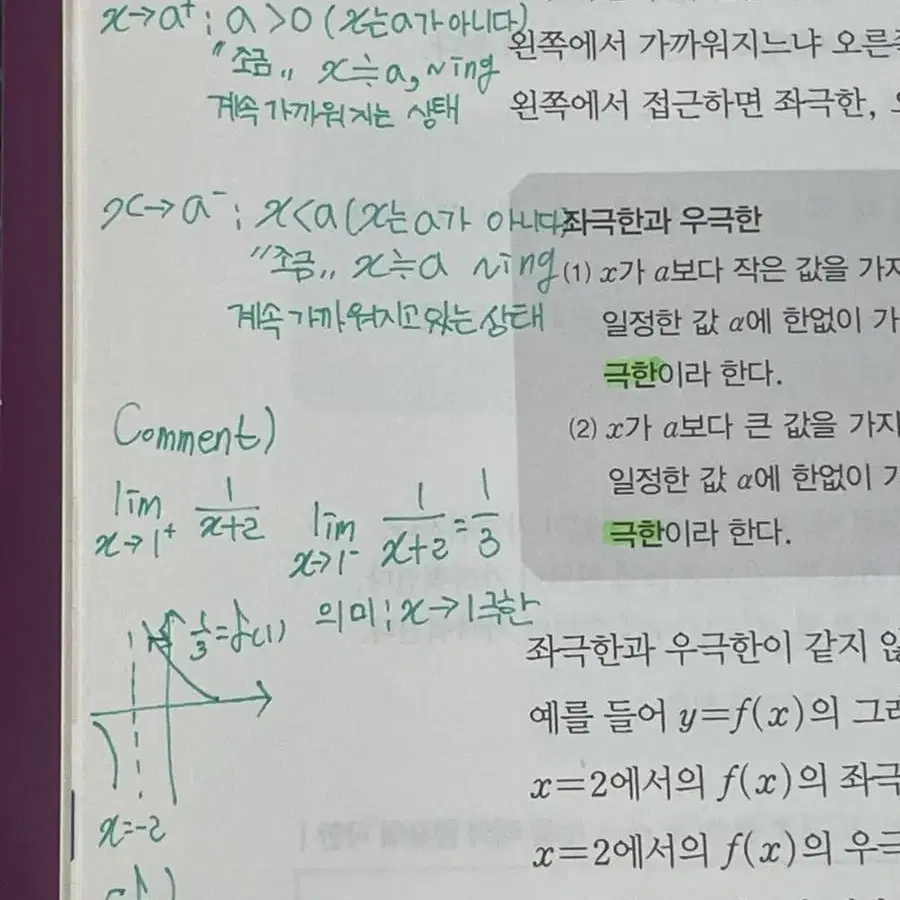 x→a⁺ ; a>0 (x는 a가 아니다)
"조금„ x≒a, ~ing
계속 가까워지는 상태
x→a⁻ ; x<a (x는 a가 아니다)
"조금„ x≒a ~ing
계속 가까워지고 있는 상태
Comment)
lim x→1⁺ 1/(x+2) lim x→1⁻ 1/(x+2) = 1/3
의미 ; x→1 극한
1/3=f(1)
x=-2
왼쪽에서 가까워지느냐 오른
왼쪽에서 접근하면 좌극한,
좌극한과 우극한
(1) x가 a보다 작은 값을 가지
일정한 값 α에 한없이 가
극한이라 한다.
(2) x가 a보다 큰 값을 가지
일정한 값 α에 한없이 가
극한이라 한다.
좌극한과 우극한이 같지 않
예를 들어 y=f(x)의 그래
x=2에서의 f(x)의 좌극
x=2에서의 f(x)의 우극